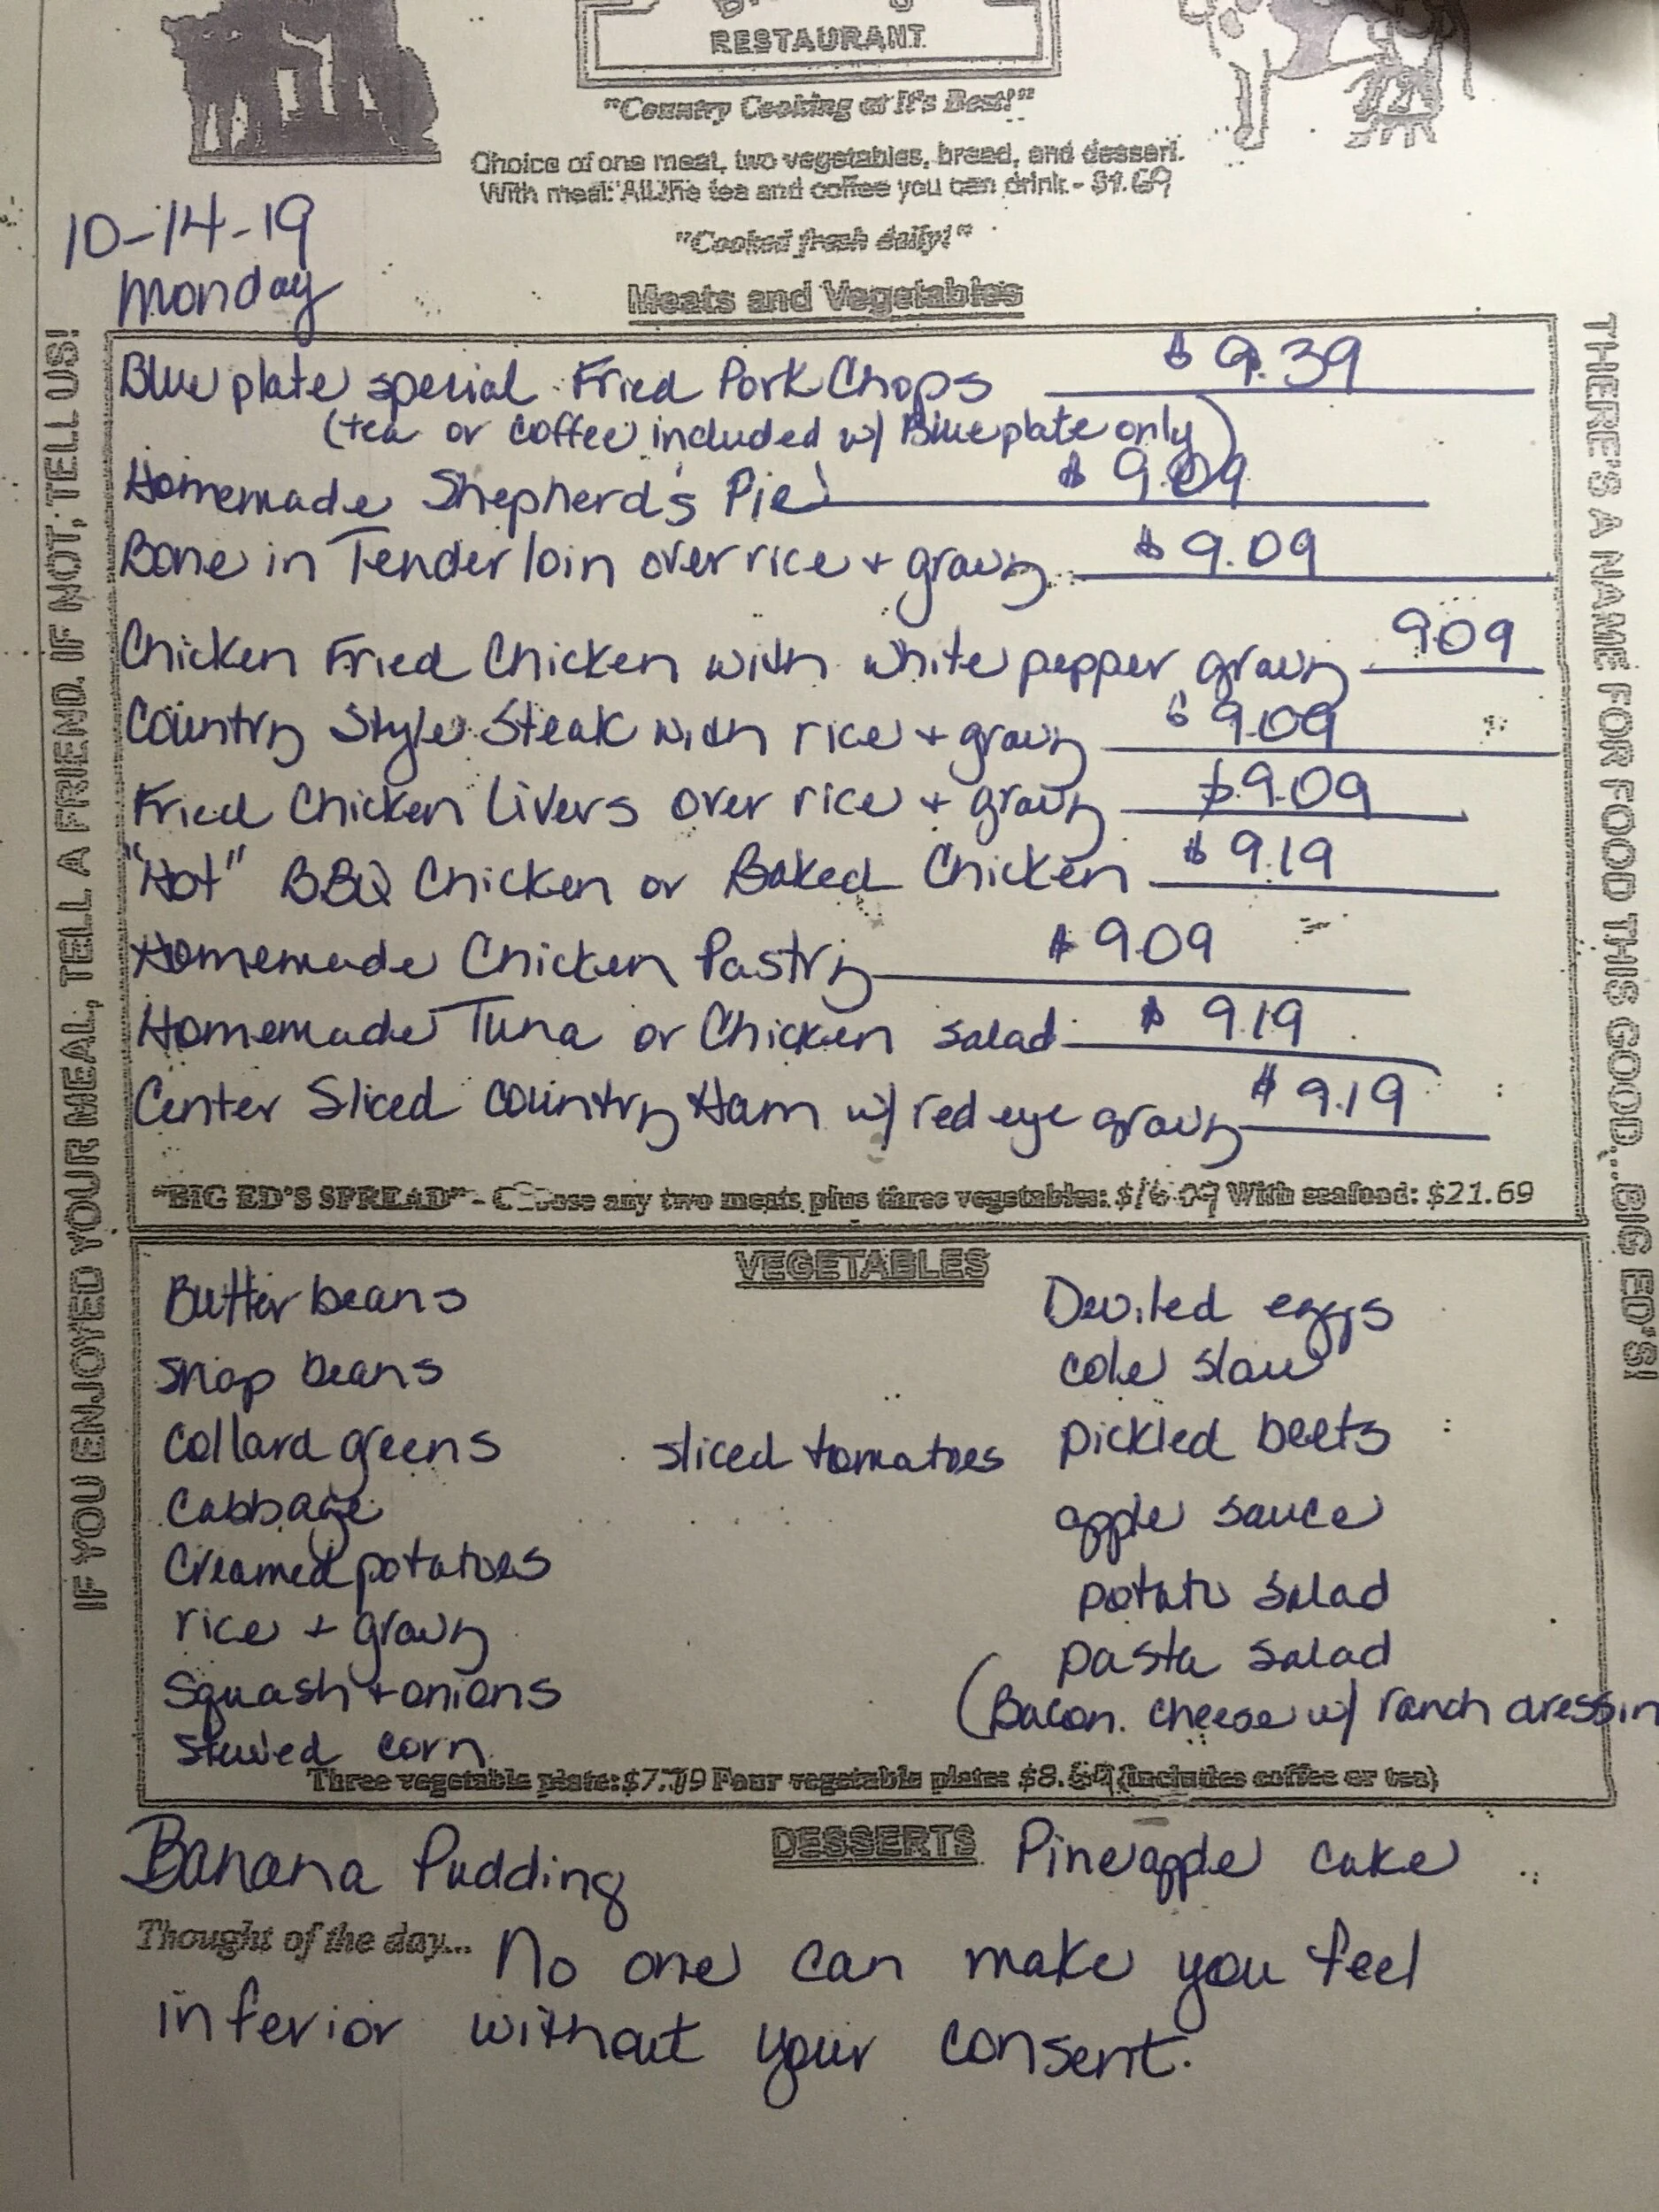 RESTAURANT
"Country Cooking at It's Best!"
Choice of one meat, two vegetables, bread, and dessert.
With meal: All the tea and coffee you can drink - $1.69
"Cooked fresh daily!"
10-14-19
Monday
Meats and Vegetables
Blue plate special Fried Pork Chops $9.39
(tea or coffee included w/ Blue plate only)
Homemade Shepherd's Pie $9.09
Bone in Tenderloin over rice + gravy $9.09
Chicken Fried Chicken with white pepper gravy 9.09
Country Style Steak with rice + gravy $9.09
Fried Chicken Livers over rice + gravy $9.09
"Hot" BBQ Chicken or Baked Chicken $9.19
Homemade Chicken Pastry $9.09
Homemade Tuna or Chicken salad $9.19
Center Sliced Country Ham w/ red eye gravy $9.19
"BIG ED'S SPREAD" - Choose any two meats plus three vegetables: $16.09 With seafood: $21.69
IF YOU ENJOYED YOUR MEAL, TELL A FRIEND. IF NOT, TELL US!
THERE'S A NAME FOR FOOD THIS GOOD...BIG ED'S!
VEGETABLES
Butter beans
snap beans
Collard greens
Cabbage
Creamed potatoes
rice + gravy
Squash + onions
stewed corn
sliced tomatoes
Deviled eggs
cole slaw
pickled beets
apple sauce
potato salad
pasta salad
(Bacon. cheese w/ ranch dressin
Three vegetable plate: $7.79 Four vegetable plate: $8. (includes coffee or tea)
DESSERTS
Banana Pudding
Pineapple cake
Thought of the day... No one can make you feel
inferior without your consent.